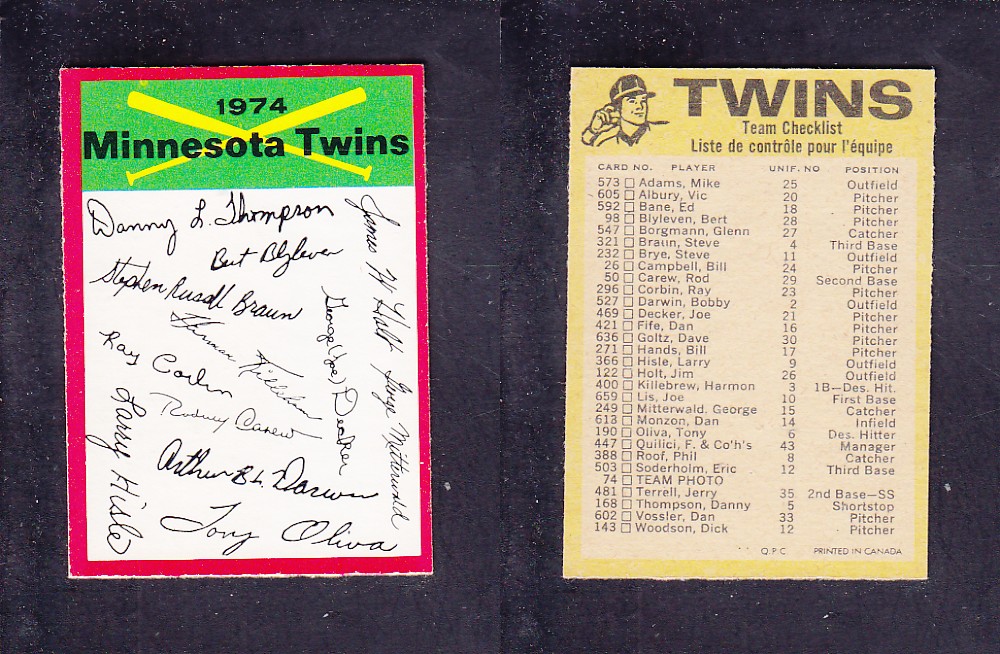 1974
Minnesota Twins
Danny L. Thompson
James W. Holt
Bert Blyleven
Stephen Russell Braun
George (Joe) Decker
Herman Killebrew
George Mitterwald
Ray Corbin
Rodney Carew
Larry Hisle
Arthur B. L. Darwin
Tony Oliva
TWINS
Team Checklist
Liste de contrôle pour l'équipe
CARD NO. PLAYER UNIF. NO POSITION
573 Adams, Mike 25 Outfield
605 Albury, Vic 20 Pitcher
592 Bane, Ed 18 Pitcher
98 Blyleven, Bert 28 Pitcher
547 Borgmann, Glenn 27 Catcher
321 Braun, Steve 4 Third Base
232 Brye, Steve 11 Outfield
26 Campbell, Bill 24 Pitcher
50 Carew, Rod 29 Second Base
296 Corbin, Ray 23 Pitcher
527 Darwin, Bobby 2 Outfield
469 Decker, Joe 21 Pitcher
421 Fife, Dan 16 Pitcher
636 Goltz, Dave 30 Pitcher
271 Hands, Bill 17 Pitcher
366 Hisle, Larry 9 Outfield
122 Holt, Jim 26 Outfield
400 Killebrew, Harmon 3 1B-Des. Hit.
659 Lis, Joe 10 First Base
249 Mitterwald, George 15 Catcher
613 Monzon, Dan 14 Infield
190 Oliva, Tony 6 Des. Hitter
447 Quilici, F. & Co'h's 43 Manager
388 Roof, Phil 8 Catcher
503 Soderholm, Eric 12 Third Base
74 TEAM PHOTO
481 Terrell, Jerry 35 2nd Base-SS
168 Thompson, Danny 5 Shortstop
602 Vossler, Dan 33 Pitcher
143 Woodson, Dick 12 Pitcher
O.P.C PRINTED IN CANADA